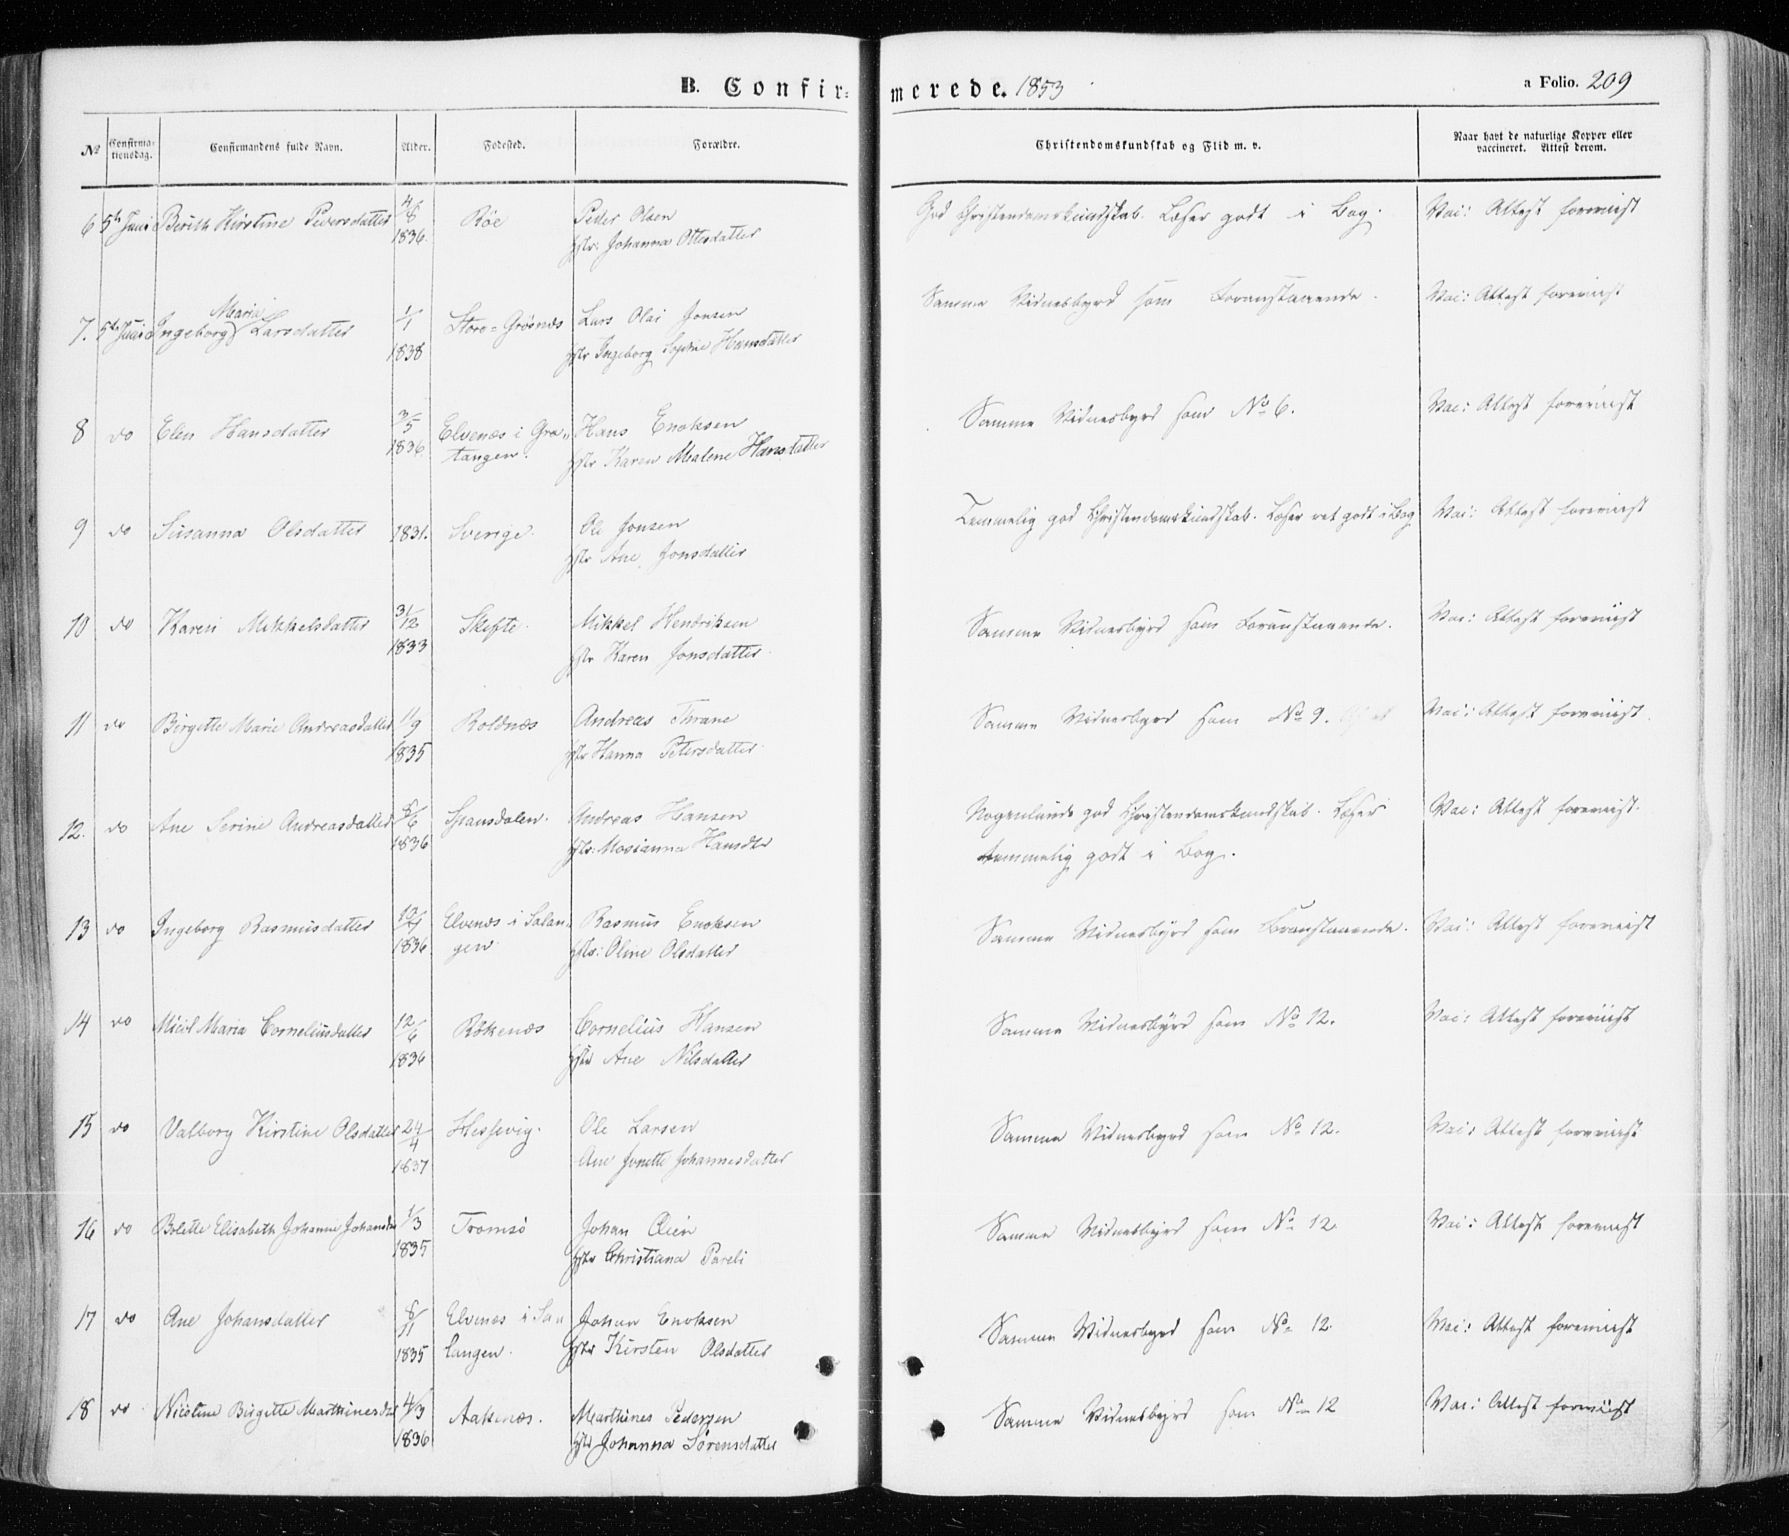 B. Confirmerede. 1853
a Folio. 209
№ Confirmationsdag. Confirmandens fulde Navn. Alder. Fødested. Forældre. Christendomskundskab og Flid m. v. Naar havt de naturlige Kopper eller vaccineret. Attest derom.
6 5te Juni Berith Kirstine Pedersdatter 4/8 1836. Röe Peder Olsen
Johanna Ottesdatter
God Christendomskundskab. Læser godt i Bog. Vac: Attest foreviist
7. 5te Juni Ingeborg Maria Larsdatter 1/1 1838 Store-Grösnæs Lars Olai Jonsen
Ingeborg Sophie Hansdatter
Samme Vidnesbyrd som Foranstaaende. Vac: Attest foreviist
8 do Elen Hansdatter 3/5 1836. Elvenæs i Gra-
tangen. Hans Enoksen
Karen Malene Hansdatter
Samme Vidnesbyrd som No 6. Vac: Attest foreviist
9 do Susanna Olsdatter 1831. Sverige. Ole Jonsen
Ane Jonsdatter
Temmelig god Christendomskundskab. Læser ret godt i Bog Vac: Attest foreviist
10 do Karen Mikkelsdatter 31/12 1833 Skefte. Mikkel Hendriksen
Karen Jonsdatter.
Samme Vidnesbyrd som Foranstaaende. Vac: Attest foreviist
11 do Birgette Marie Andreasdatter 11/9 1835 Roldnæs Andreas Thrane
Hanna Petersdatter
Samme Vidnesbyrd som No 9. Vac: Attest foreviist.
12. do Ane Serine Andreasdatter 8/6 1836 Spansdalen. Andreas Hansen
Mosianna Hansdtr
Nogenlunde god Christendomskundskab. Læser
temmelig godt i Bog. Vac: Attest foreviist.
13 do Ingeborg Rasmusdatter 1836. Elvenæs i Salan-
gen Rasmus Enoksen
Oline Olsdatter
Samme Vidnesbyrd som Foranstaaende. Vac: Attest foreviist
14 do Maria Corneliusdatter 12/6 1836 Rökenæs Cornelius Hansen
Ane Nilsdatter
Samme Vidnesbyrd som No 12. Vac: Attest foreviist
15 do Valborg Kirstine Olsdatter 24/4 1837 Hessevig. Ole Larsen
Ane Jonette Johannesdatter
Samme Vidnesbyrd som No 12. Vac: Attest foreviist
16 do Bolette Elisabeth Johanne Johansdtr 1/3 1835 Tromsö Johan
Christiana Pareli
Samme Vidnesbyrd som No 12. Vac: Attest foreviist
17 do Ane Johansdatter 8/11 1835 Elvenæs i Sa-
langen. Johan Enoksen
Kirsten Olsdatter
Samme Vidnesbyrd som No 12. Vac: Attest foreviist
18 do Nicoline Birgitte Marthinesdtr 4/3 1836 Aakenæs. Marthines Pedersen
Johanna Sörensdatter
Samme Vidnesbyrd som No 12 Vac: Attest foreviist